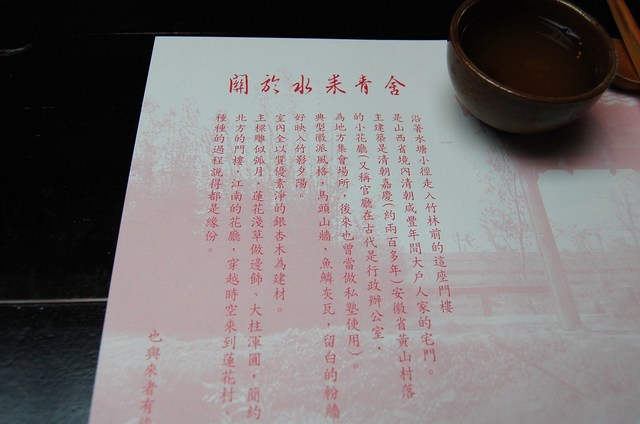 關於水采青舍
沿著水塘小徑走入竹林前的這座門樓
是山西省境內清朝咸豐年間大戶人家的宅門。
主建築是清朝嘉慶(約兩百多年)安徽省黃山村落
的小花廳(又稱官廳在古代是行政辦公室，
為地方集會場所，後來也曾當做私塾使用)。
典型徽派風格，馬頭山牆，魚鱗灰瓦，留白的粉牆
好映入竹影夕陽。
室內全以質優素淨的銀杏木為建材。
主樑雕似弧月，蓮花淺草做邊飾、大柱渾圓，簡約
北方的門樓，江南的花廳，穿越時空來到蓮花村，
種種的過程說得都是緣份。
也與來者有